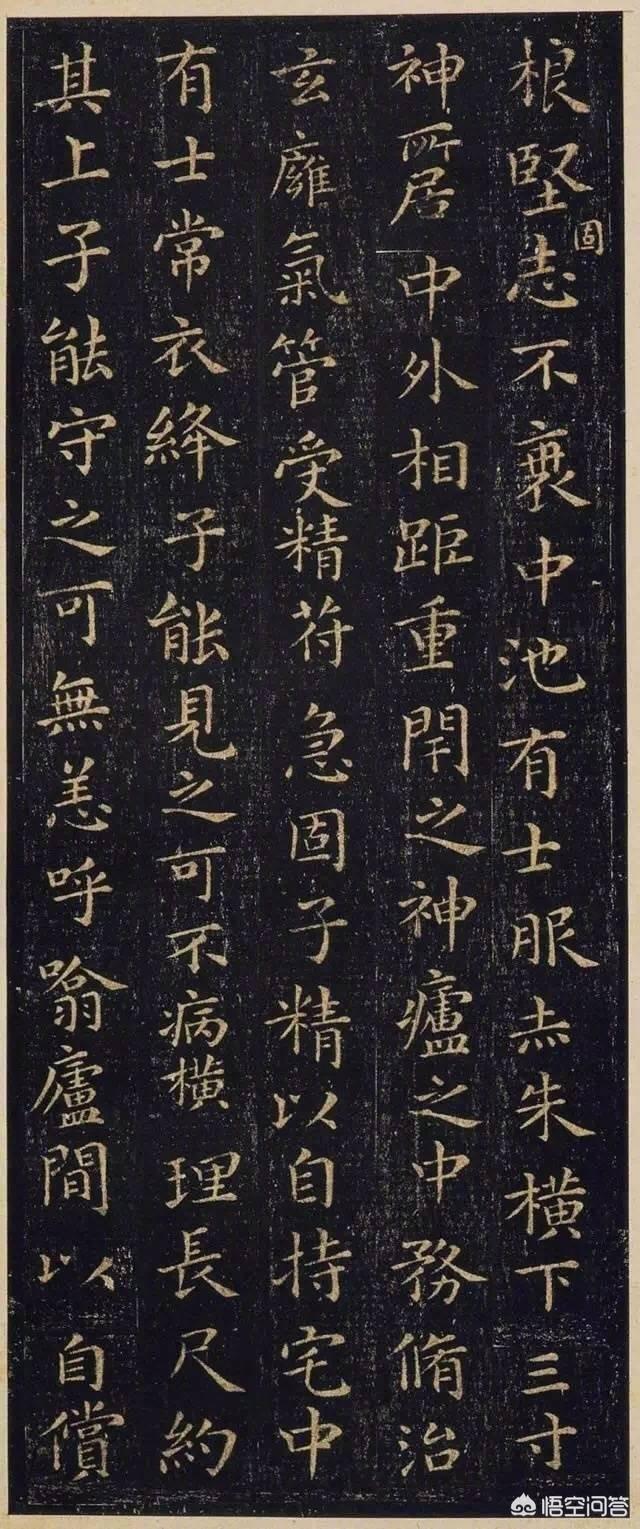 根堅固志不衰中池有士服赤朱橫下三寸
神所居中外相距重閇之神廬之中務脩治
玄廱氣管受精符急固子精以自持宅中
有士常衣絳子能見之可不病橫理長尺約
其上子能守之可無恙呼噏廬間以自償
悟空问答